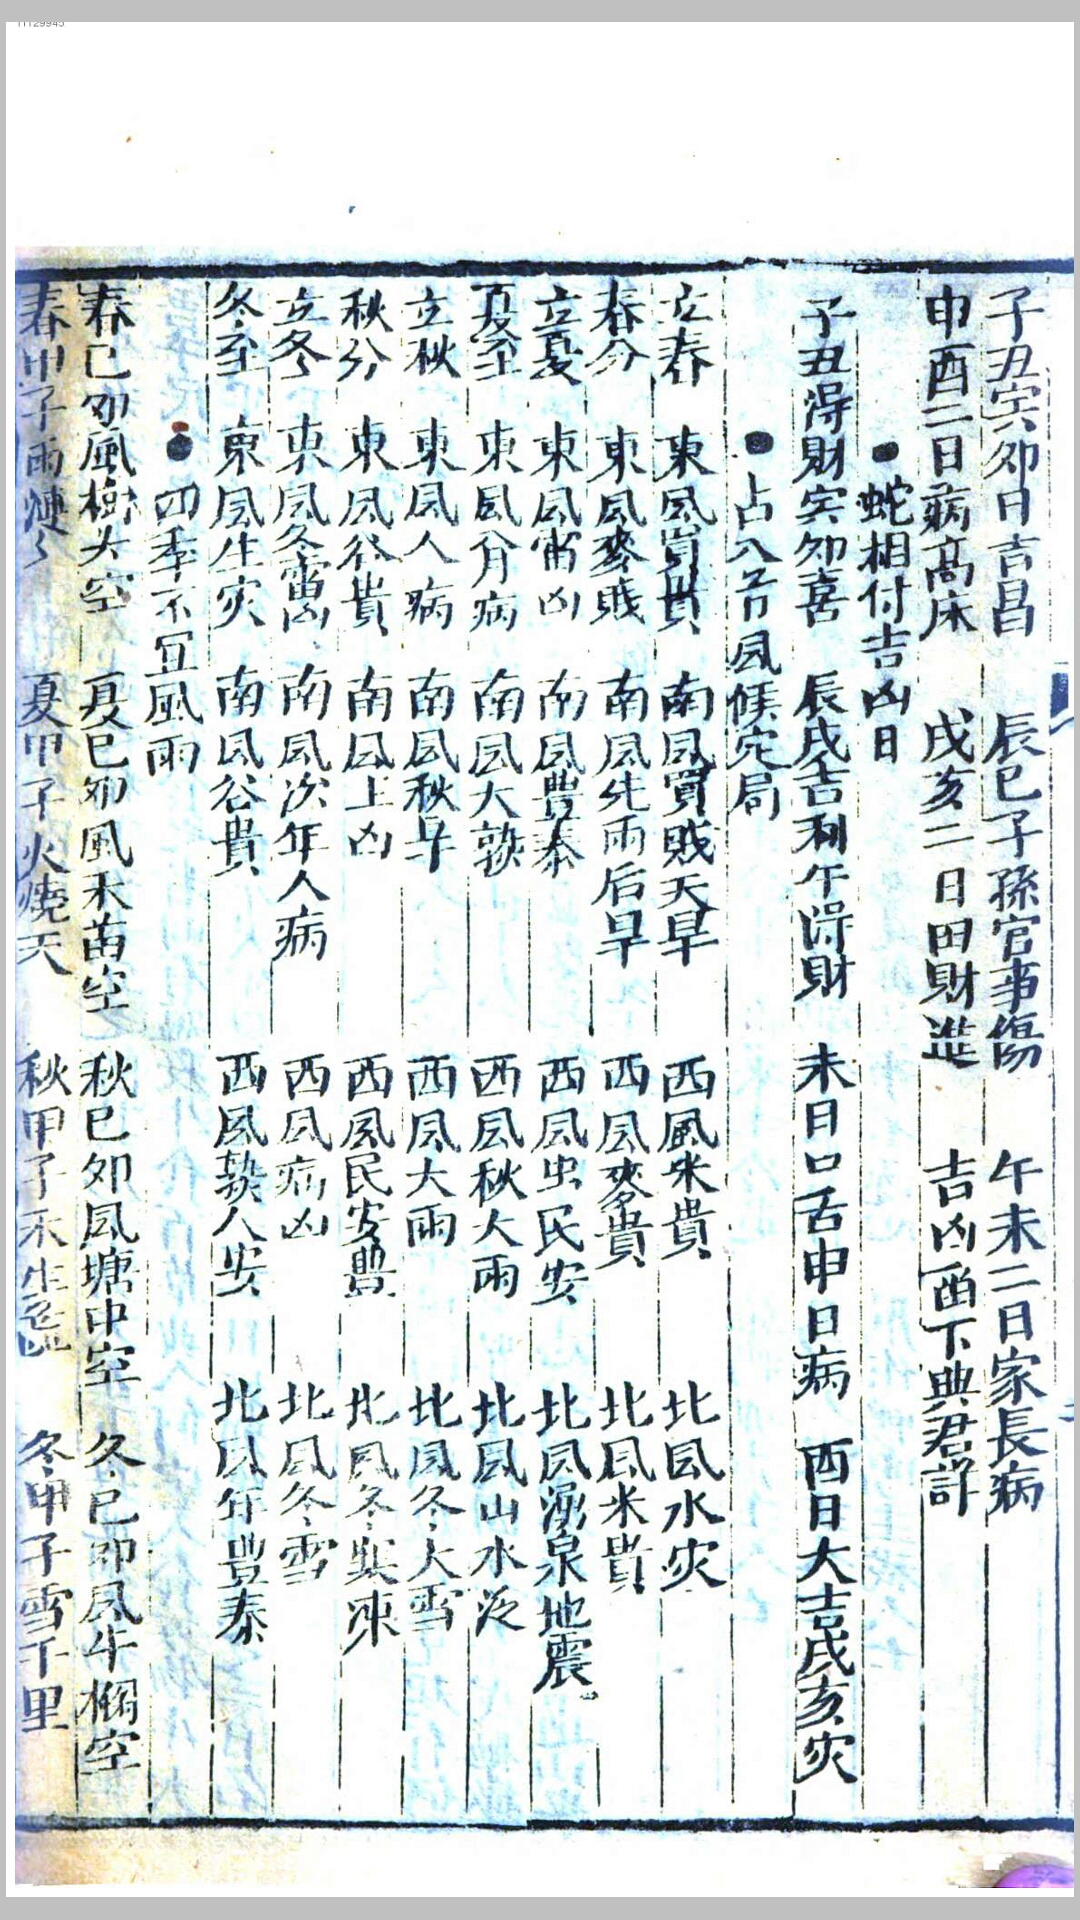 子丑寅卯日吉昌 辰巳子孫官事傷 午未二日家長病
申酉二日病高床 戌亥二日田財進 吉凶酉下與君詳
蛇相付吉凶日
子丑淂財寅卯喜 辰戌吉利午淂財 未日口舌申日病 酉日大吉戌亥灾
占八节風候定局
立春 東風買貴 南風買賤天旱 西風米貴 北風水灾
春分 東風麥賎 南風先雨后旱 西風麥貴 北風米貴
立夏 東風雷凶 南風豊泰 西風虫民安 北風湧泉地震
夏至 東風分病 南風大熟 西風秋大雨 北風山水泛
立秋 東風人病 南風秋旱 西風大雨 北風冬大雪
秋分 東風谷貴 南風上凶 西風民安豊 北風冬寒凍
立冬 東風冬雷凶 南風次年人病 西風病凶 北風冬雪
冬至 東風生灾 南風谷貴 西風熟人安 北風年豊泰
四季不宜風雨
春己卯風樹头空 夏己卯風禾苗空 秋己卯風塘中空 冬己卯風牛欄空
春甲子雨 夏甲子火燒天 秋甲子禾生 冬甲子雪千里